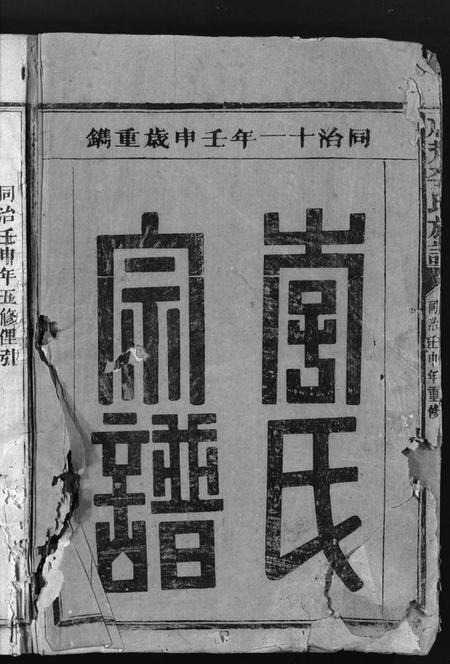 同治十一年壬申歲重鐫
李氏
宗譜
李氏族譜
同治壬申年重修
同治壬申年五修俚引